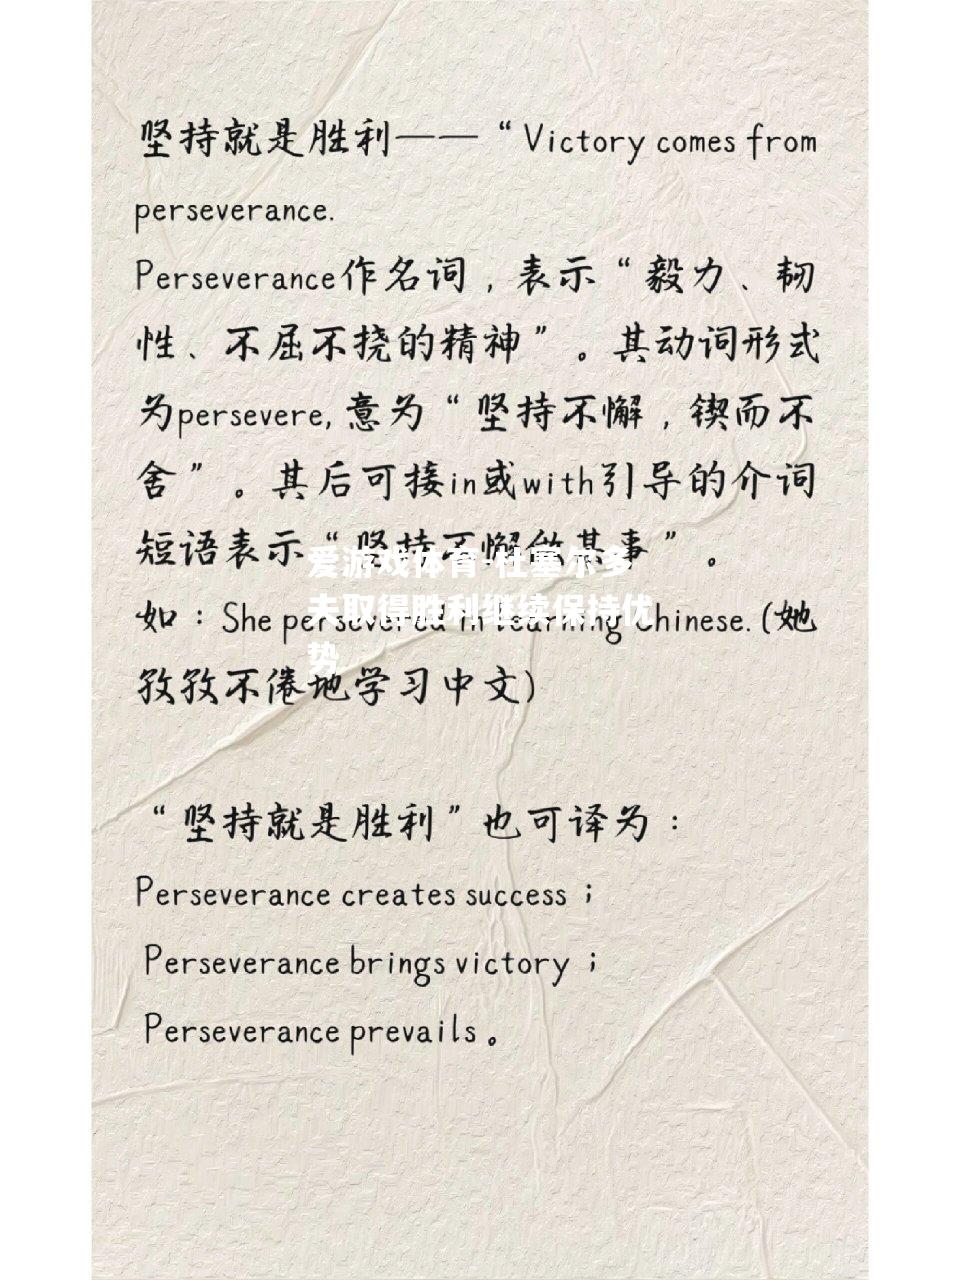 坚持就是胜利——“Victory comes from
perseverance.
Perseverance作名词，表示“毅力、韧
性、不屈不挠的精神”。其动词形式
为persevere,意为“坚持不懈，锲而不
舍”。其后可接in或with引导的介词
短语表示“坚持不懈做某事”。
爱游戏体育-杜塞尔多
夫取得胜利继续保持优
势
如：She persevered in learning Chinese.(她
孜孜不倦地学习中文)
“坚持就是胜利”也可译为：
Perseverance creates success；
Perseverance brings victory；
Perseverance prevails。